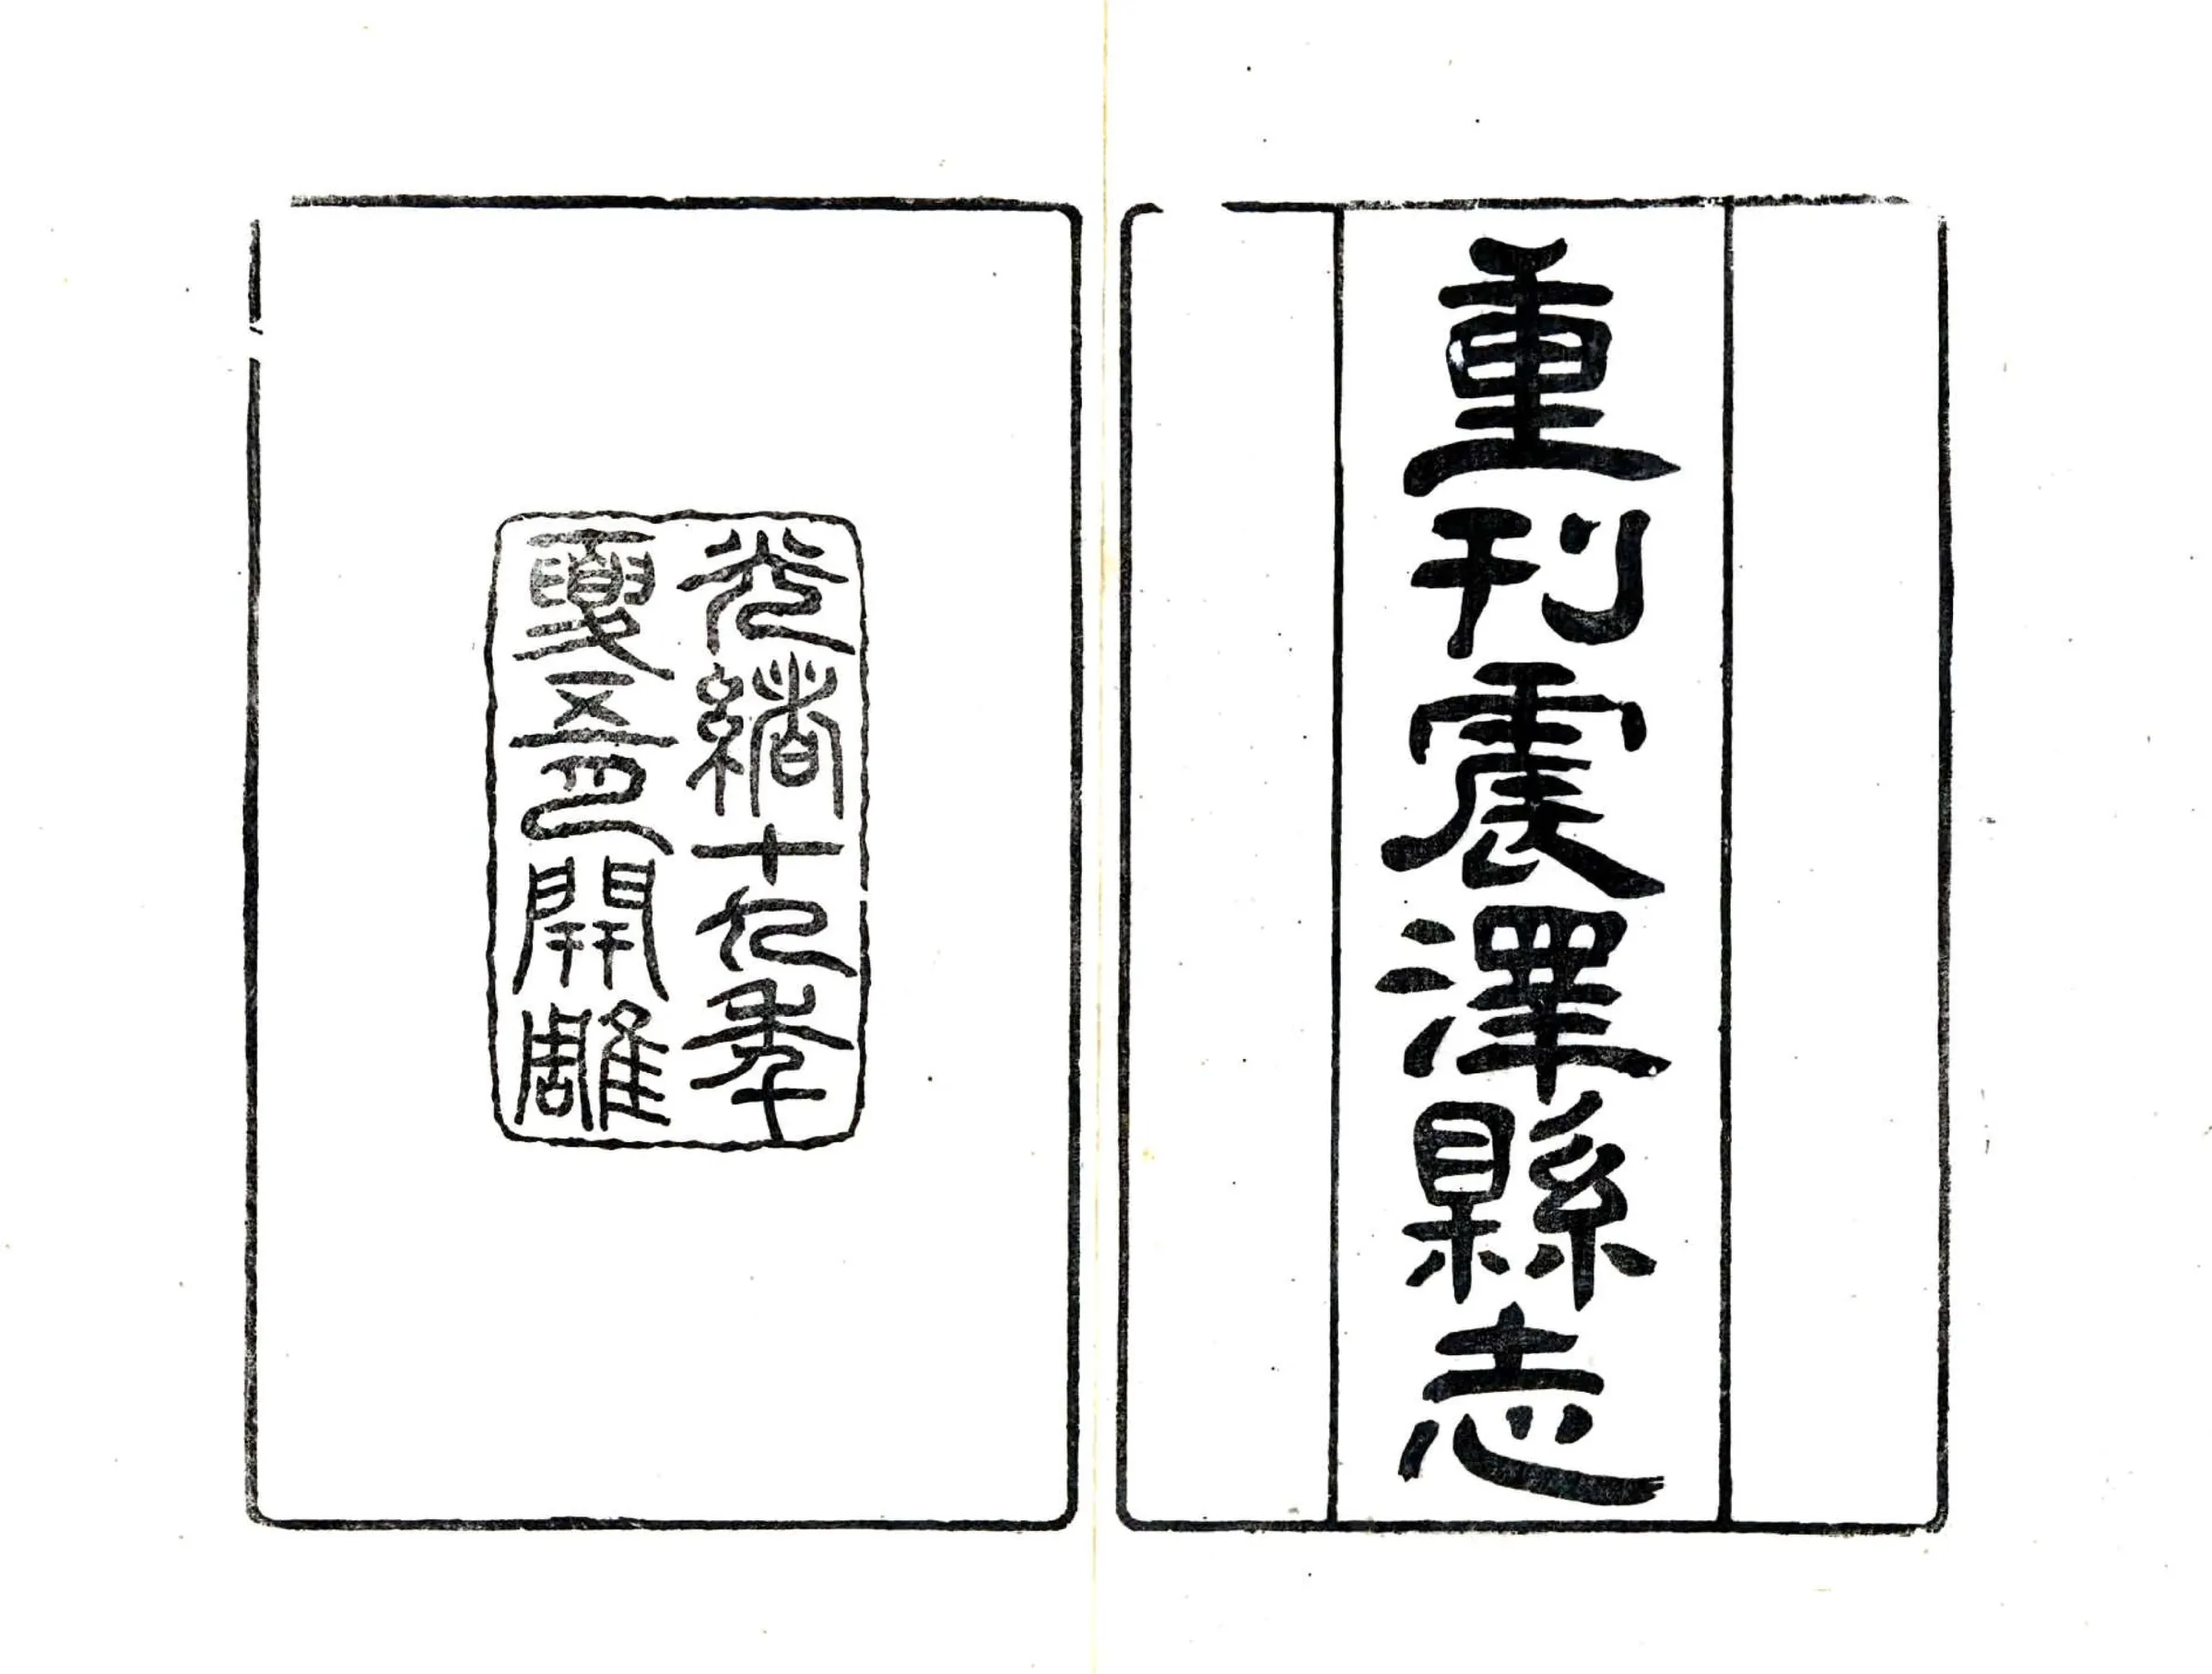 重刊震澤縣志
光緒十九年
夏五月開雕